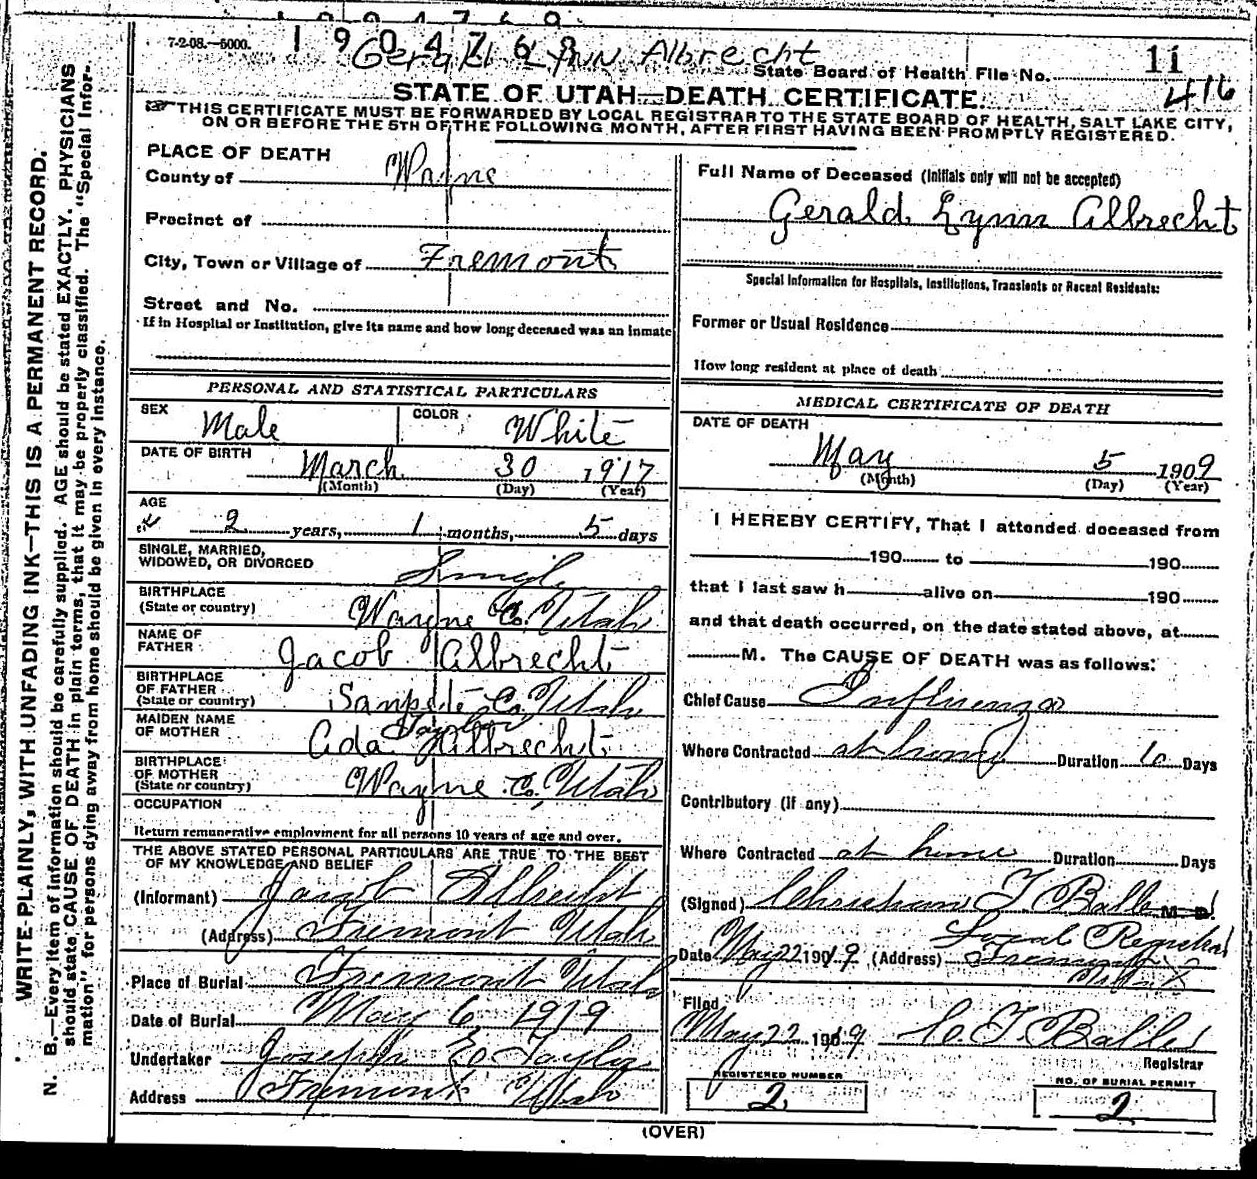 7-2-08.—5000.
1904768
Gerald Lynn Albrecht
State Board of Health File No. 11
416
STATE OF UTAH—DEATH CERTIFICATE.
THIS CERTIFICATE MUST BE FORWARDED BY LOCAL REGISTRAR TO THE STATE BOARD OF HEALTH, SALT LAKE CITY,
ON OR BEFORE THE 5TH OF THE FOLLOWING MONTH, AFTER FIRST HAVING BEEN PROMPTLY REGISTERED.
WRITE PLAINLY, WITH UNFADING INK—THIS IS A PERMANENT RECORD.
N. B.—Every item of information should be carefully supplied. AGE should be stated EXACTLY. PHYSICIANS
should state CAUSE OF DEATH in plain terms, that it may be properly classified. The "Special Infor-
mation" for persons dying away from home should be given in every instance.
PLACE OF DEATH
County of Wayne
Precinct of
City, Town or Village of Fremont
Street and No.
If in Hospital or Institution, give its name and how long deceased was an inmate
PERSONAL AND STATISTICAL PARTICULARS
SEX Male COLOR White
DATE OF BIRTH
March 30 1917
(Month) (Day) (Year)
AGE
2 years, 1 months, 5 days
SINGLE, MARRIED,
WIDOWED, OR DIVORCED Single
BIRTHPLACE
(State or country) Wayne Co. Utah
NAME OF
FATHER Jacob Albrecht
BIRTHPLACE
OF FATHER
(State or country) Sanpete Co. Utah
MAIDEN NAME Taylor
OF MOTHER Ada Albrecht
BIRTHPLACE
OF MOTHER
(State or country) Wayne Co. Utah
OCCUPATION
Return remunerative employment for all persons 10 years of age and over.
THE ABOVE STATED PERSONAL PARTICULARS ARE TRUE TO THE BEST
OF MY KNOWLEDGE AND BELIEF
(Informant) Jacob Albrecht
(Address) Fremont Utah
Place of Burial Fremont Utah
Date of Burial May 6 1919
Undertaker Joseph E. Taylor
Address Fremont Utah
Full Name of Deceased (Initials only will not be accepted)
Gerald Lynn Albrecht
Special Information for Hospitals, Institutions, Transients or Recent Residents:
Former or Usual Residence
How long resident at place of death
MEDICAL CERTIFICATE OF DEATH
DATE OF DEATH
May 5 1909
(Month) (Day) (Year)
I HEREBY CERTIFY, That I attended deceased from
190 to 190
that I last saw h alive on 190
and that death occurred, on the date stated above, at
M. The CAUSE OF DEATH was as follows:
Chief Cause Influenza
Where Contracted at home Duration 10 Days
Contributory (if any)
Where Contracted at home Duration Days
(Signed) Christian T. Balle M D.
Local Registrar
Date May 22 1919 (Address) Fremont
Utah
Filed
May 22 1919 C. T. Balle
Registrar
REGISTERED NUMBER
2
NO. OF BURIAL PERMIT
2
(OVER)